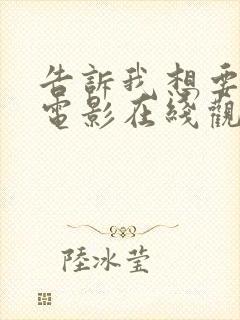 告訴我想要
電影在綫觀
陸冰莹